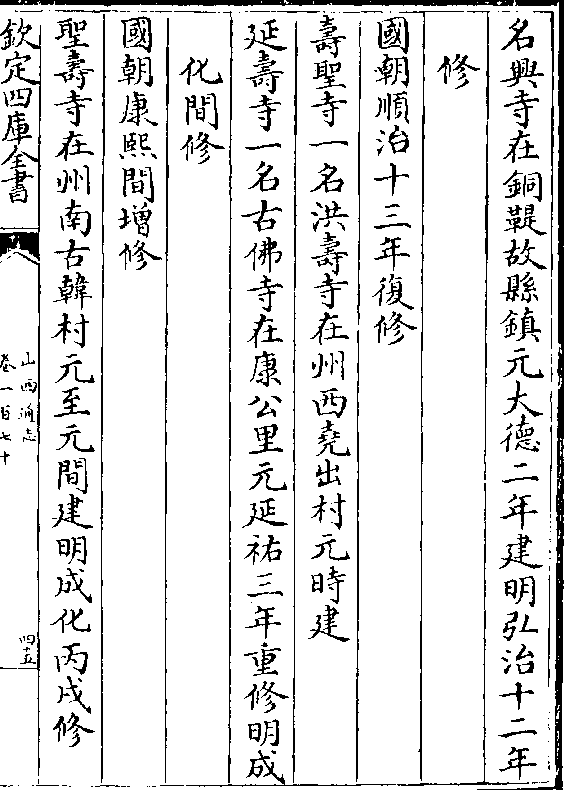 名興寺在銅鞮故縣鎮元大德二年建明弘治十二年
修
國朝順治十三年復修
壽聖寺一名洪壽寺在州西堯出村元時建
延壽寺一名古佛寺在康公里元延祐三年重修明成
化間修
國朝康熙間增修
聖壽寺在州南古韓村元至元間建明成化丙戌修
欽定四庫全書
山西通志
卷一百七十
四十五